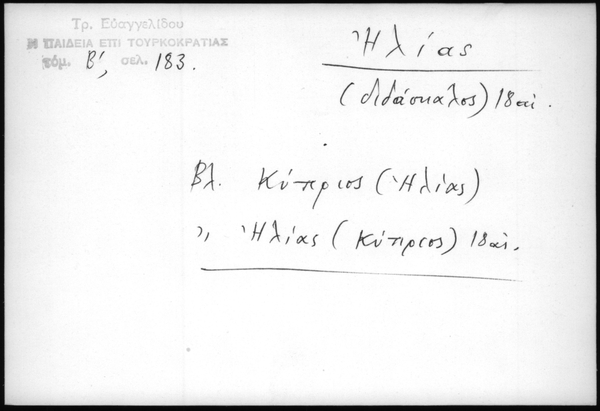 Τρ. Εὐαγγελίδου
Η ΠΑΙΔΕΙΑ ΕΠΙ ΤΟΥΡΚΟΚΡΑΤΙΑΣ
τόμ. Β', σελ. 183.
Ἠλίας
(διδάσκαλος) 18 αἰ.
Βλ. Κύπριος (Ἠλίας)
,, Ἠλίας (Κύπριος) 18 αἰ.